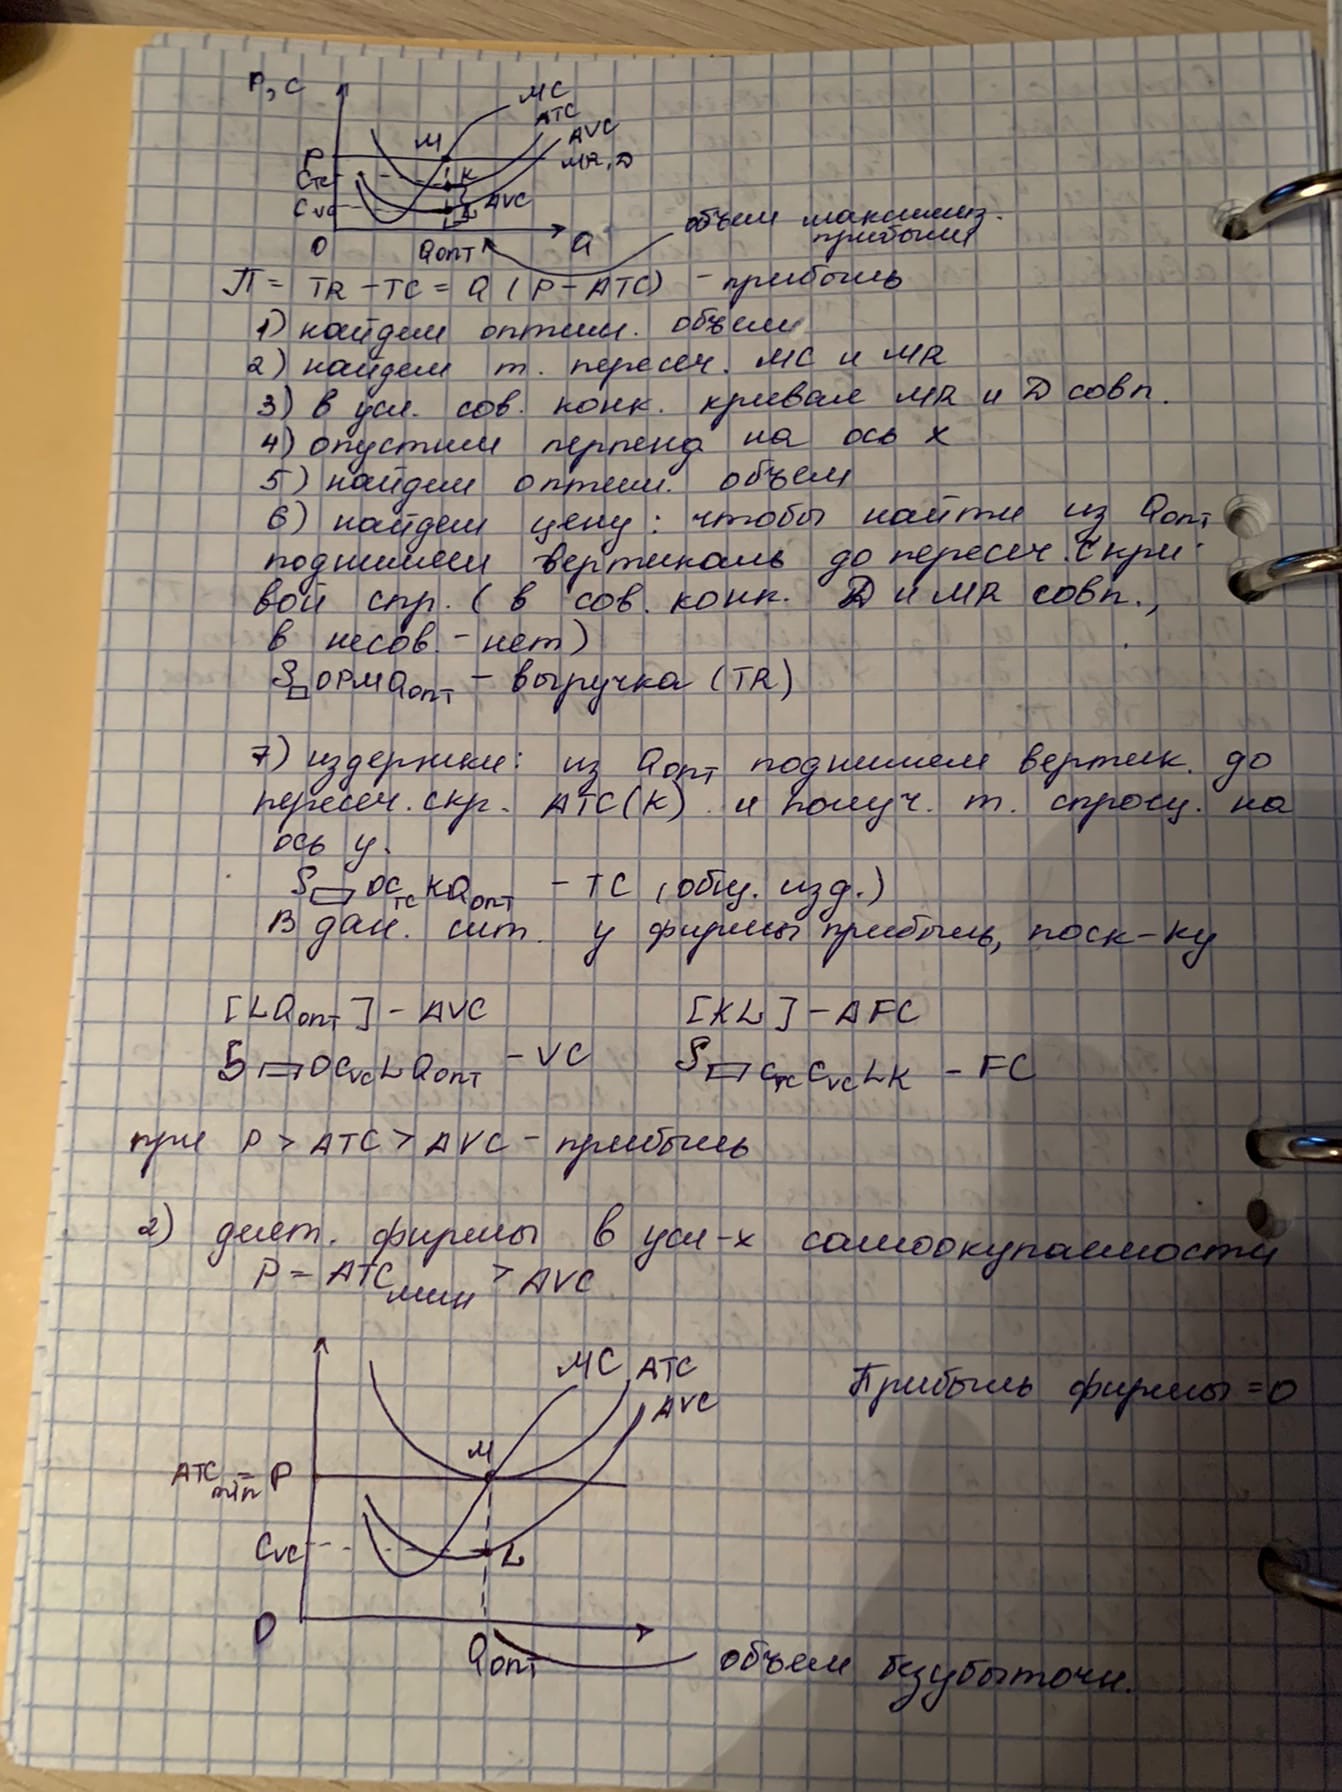 P, C
MC
ATC
AVC
M
P
MR, D
Cтс
K
Cvc
L
AVC
объем максимиз.
прибыли
0
Qопт
Q
П = TR - TC = Q (P - ATC) - прибыль
1) найдем оптим. объем
2) найдем т. пересеч. MC и MR
3) в усл. сов. конк. кривая MR и D совп.
4) опустим перпенд на ось x
5) найдем оптим. объем
6) найдем цену: чтобы найти из Qопт
поднимем вертикаль до пересеч. с кри-
вой спр. ( в сов. конк. D и MR совп.,
в несов. - нет)
S▭OPMQопт - выручка (TR)
7) издержки: из Qопт поднимем вертик. до
пересеч. с кр. ATC(K) и получ. т. спроец. на
ось y.
S▭OCтсKQопт - TC (общ. изд.)
В дан. сит. у фирмы прибыль, поск-ку
[LQопт] - AVC
[KL] - AFC
S▭OCvcLQопт - VC
S▭CтсCvcLK - FC
при P > ATC > AVC - прибыль
2) деят. фирмы в усл-х самоокупаемости
P = ATCмин > AVC
MC
ATC
AVC
Прибыль фирмы = 0
M
ATCmin = P
Cvc
L
0
Qопт
объем безубыточн.